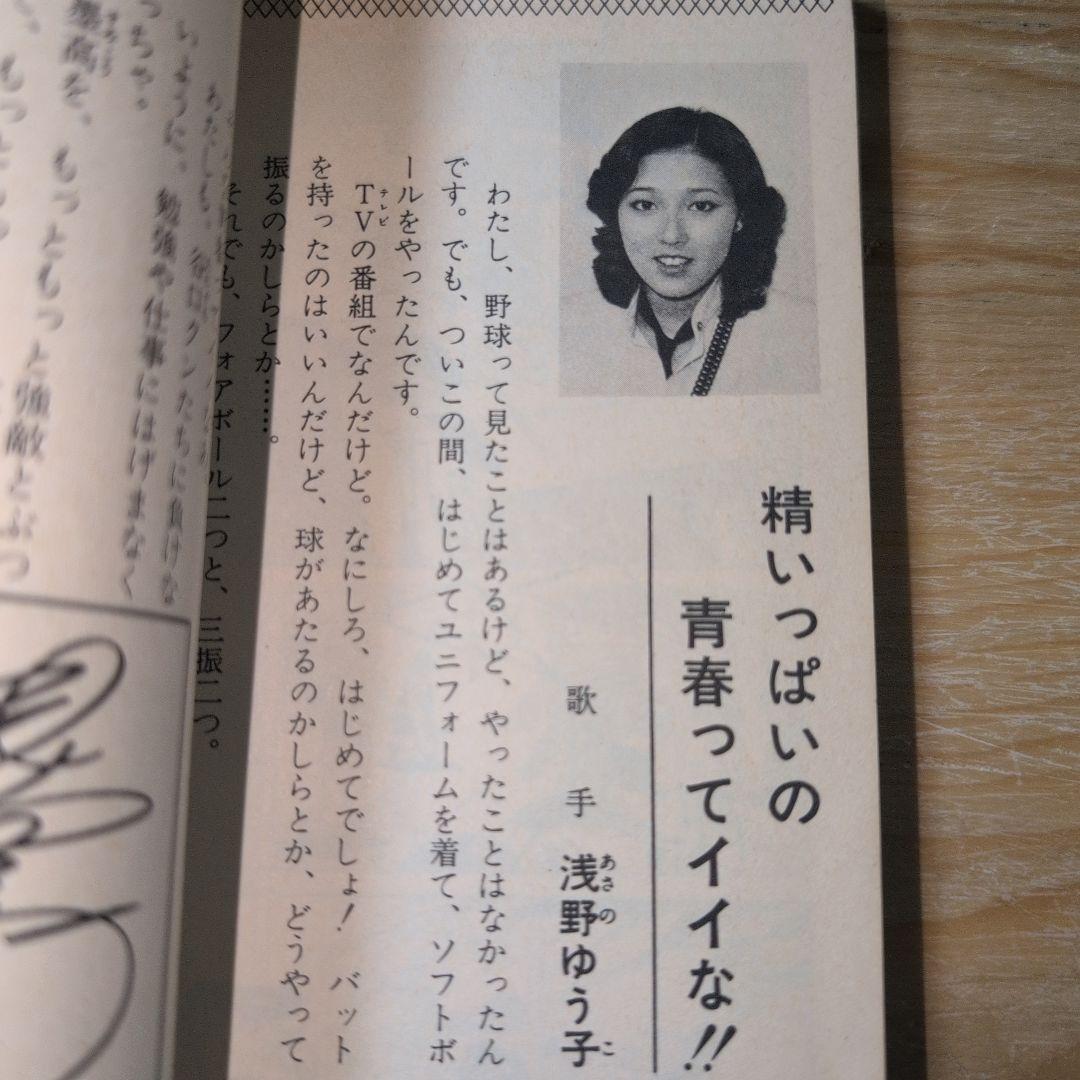 精いっぱいの
青春ってイイな!!
歌手 浅野ゆう子
あさの こ
わたし、野球って見たことはあるけど、やったことはなかったん
です。でも、ついこの間、はじめてユニフォームを着て、ソフトボ
ールをやったんです。
TVの番組でなんだけど。なにしろ、はじめてでしょ! バット
テレビ
を持ったのはいいんだけど、球があたるのかしらとか、どうやって
振るのかしらとか……。
それでも、フォアボール二つと、三振二つ。
クンたちに負けな
いように、勉強や仕事にはげまなく
っちゃ。
を、もっともっと強敵とぶつ